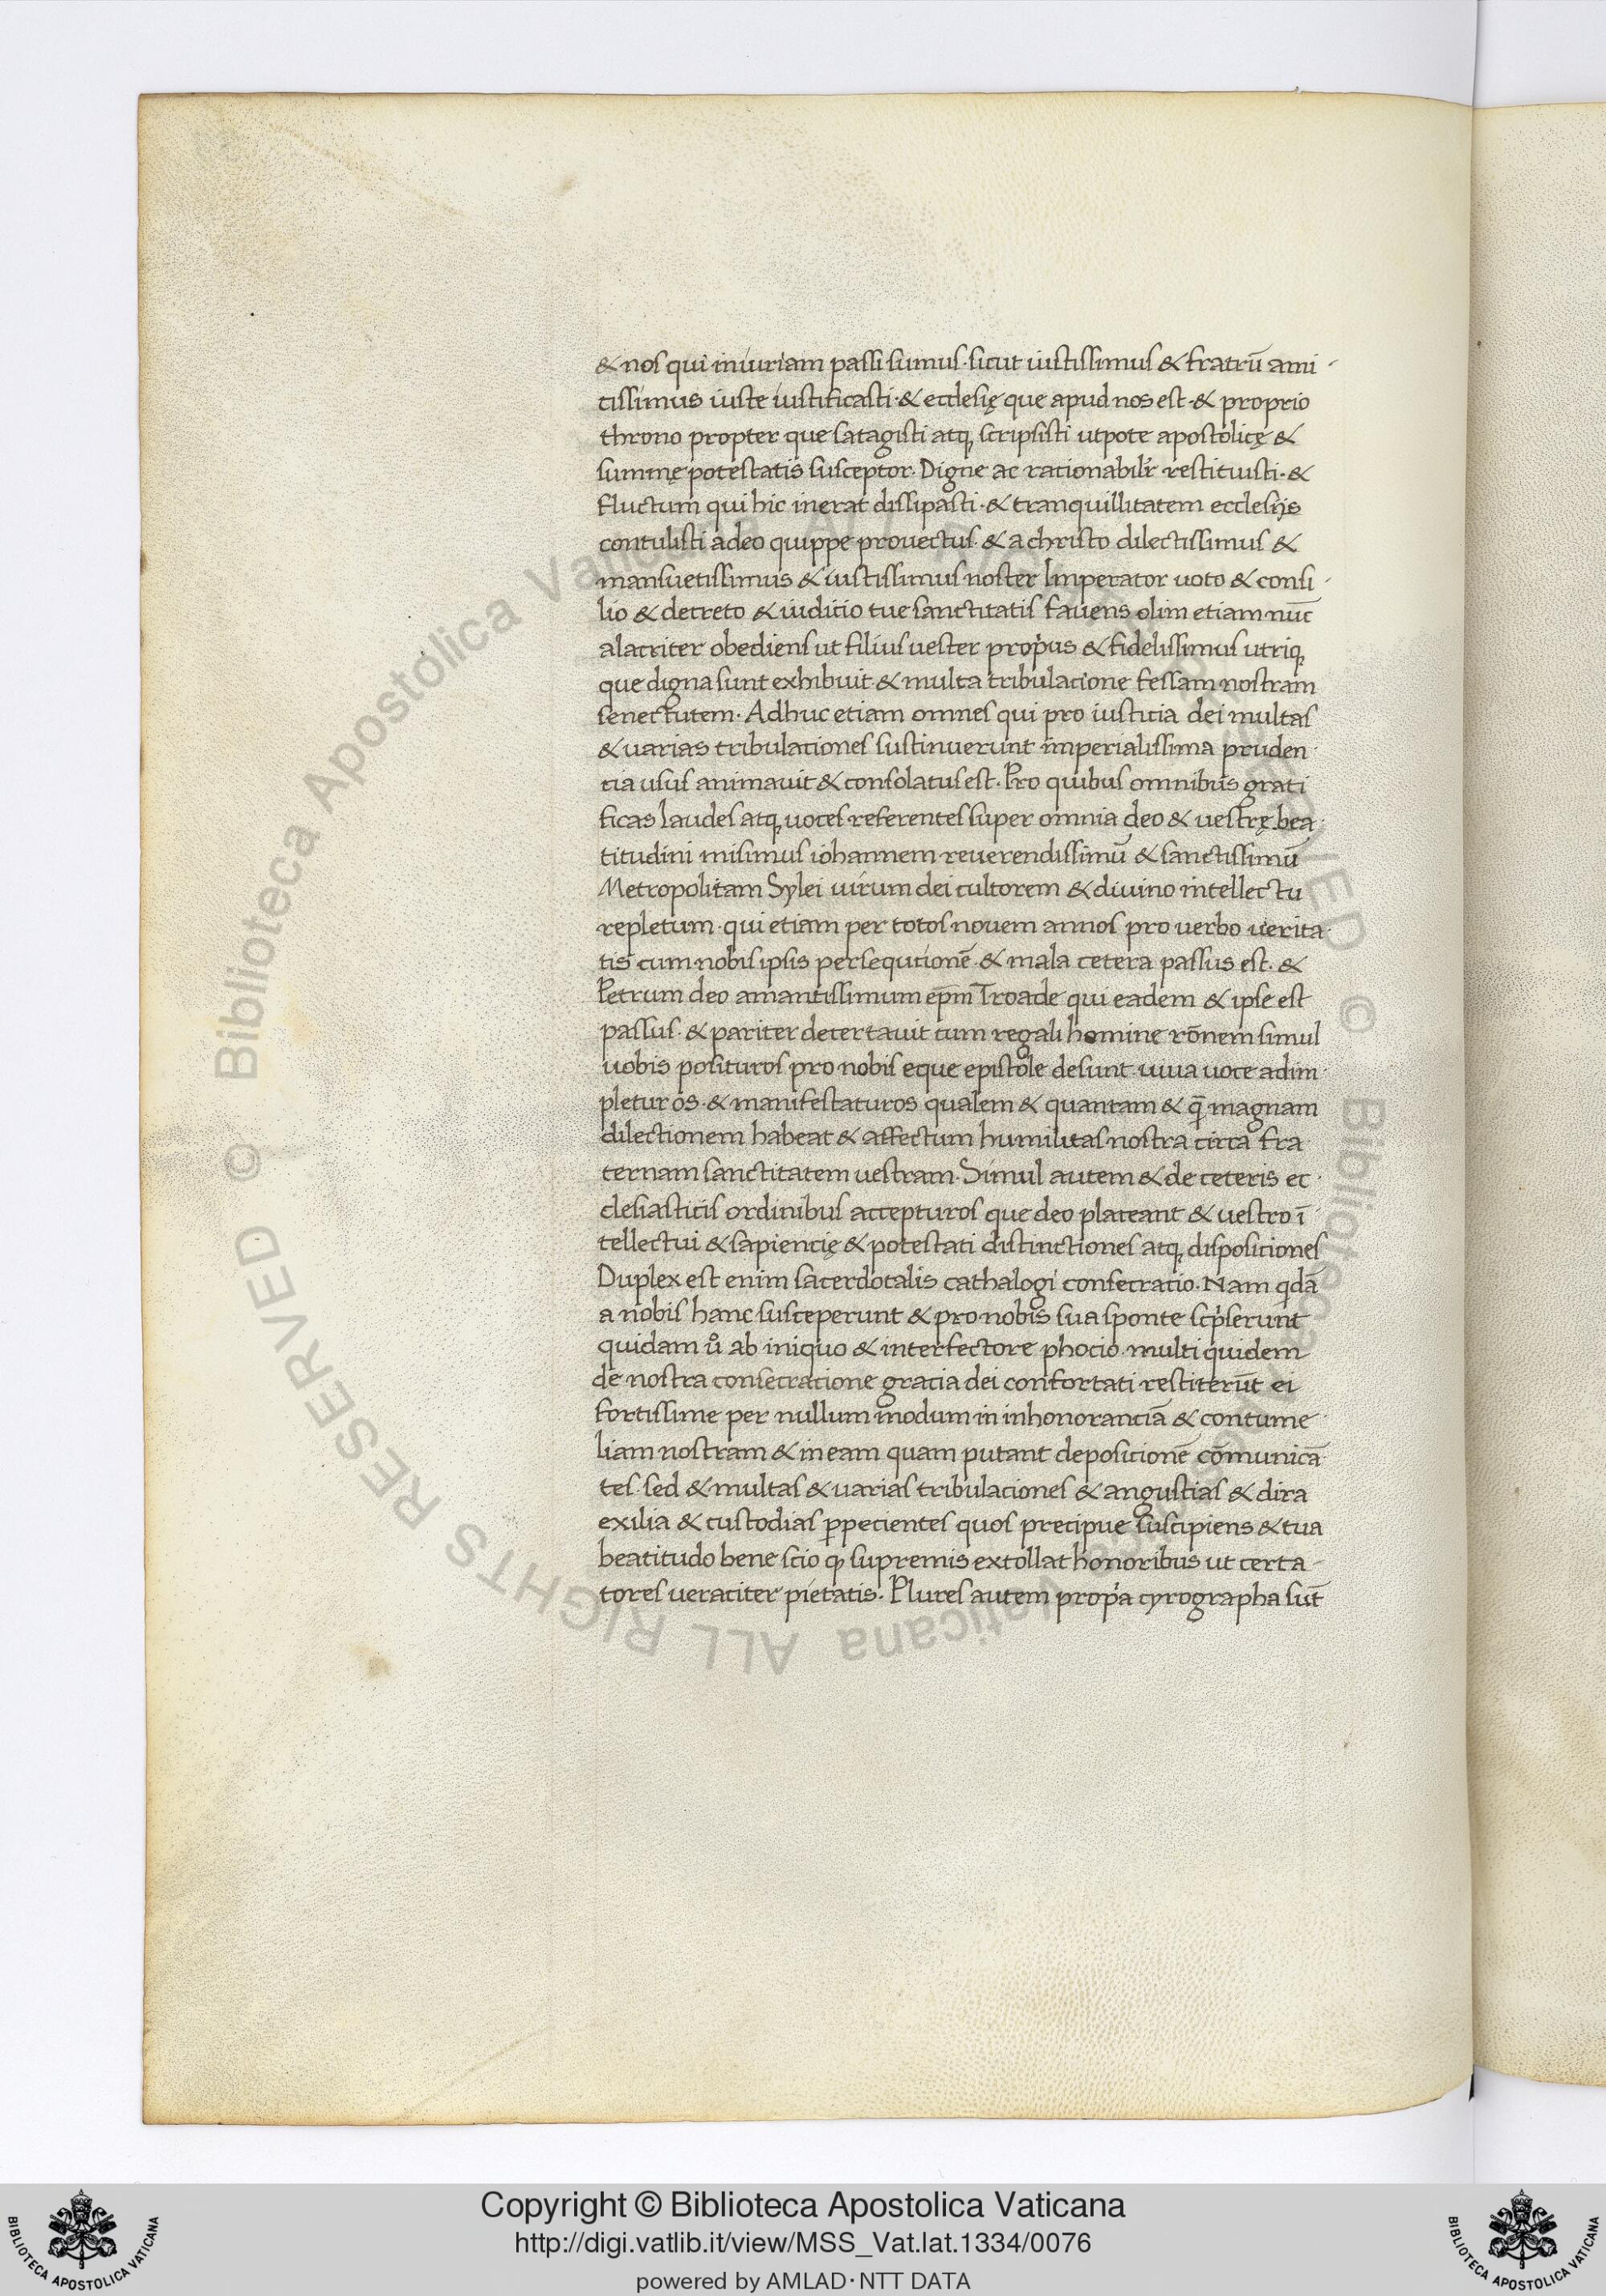 & nos qui iniuriam passi sumus · sicut iustissimus & fratrū ami-
tissimus iuste iustificasti · & ecclesię que apud nos est · & proprio
throno propter que satagisti atq, scripsisti utpote apostolicę &
summę potestatis susceptor. Digne ac rationabilr̄ restituisti · &
fluctum qui hic inerat dissipasti · & tranquillitatem ecclesijs
contulisti adeo quippe prouectus · & a christo dilectissimus &
mansuetissimus & iustissimus noster Imperator uoto & consi-
lio & decreto & iuditio tue sanctitatis fauens olim etiam nūc
alacriter obediens ut filius uester propus & fidelissimus utriq,
que digna sunt exhibuit · & multa tribulatione fessam nostram
senectutem · Adhuc etiam omnes qui pro iusticia dei multas
& uarias tribulationes sustinuerunt imperialissima pruden-
tia usus animauit & consolatus est · Pro quibus omnibus grati
ficas laudes atq, uoces referentes super omnia deo & uestrę bea-
titudini misimus iohannem reuerendissimū & sanctissimū
Metropolitam Sylei uirum dei cultorem & diuino intellectu
repletum · qui etiam per totos nouem annos pro uerbo uerita-
tis cum nobis ipsis persequtionē · & mala cetera passus est · &
Petrum deo amantissimum ep̄m Troade qui eadem & ipse est
passus · & pariter decertauit cum regali homine rōnem simul
uobis posituros pro nobis eque epistole desunt uiua uoce adim-
pleturos · & manifestaturos qualem & quantam & q̄ magnam
dilectionem habeat & affectum humilitas nostra circa fra
ternam sanctitatem uestram · Simul autem & de ceteris ec-
clesiasticis ordinibus accepturos que deo placeant & uestro ī-
tellectui & sapiencię & potestati distinctiones atq, dispositiones
Duplex est enim sacerdotalis cathalogi consecratio · Nam qdā
a nobis hanc susceperunt & pro nobis sua sponte scpserunt
quidam u̓ ab iniquo & interfectore phocio · multi quidem
de nostra consecratione gracia dei confortati restiterūt ei
fortissime per nullum modum in inhonoranciā & contume-
liam nostram & in eam quam putant depositionē cōmunicā
tes · sed & multas & uarias tribulaciones & angustias & dira
exilia & custodias ꝑpecientes quos precipue suscipiens & tua
beatitudo bene scio ꝙ supremis extollat honoribus ut certa-
tores ueraciter pietatis · Plures autem propa cyrographa sūt
Copyright © Biblioteca Apostolica Vaticana
http://digi.vatlib.it/view/MSS_Vat.lat.1334/0076
powered by AMLAD · NTT DATA
BIBLIOTECA APOSTOLICA VATICANA
BIBLIOTECA APOSTOLICA VATICANA
© Biblioteca Apostolica Vaticana ALL RIGHTS RESERVED © Biblioteca Apostolica Vaticana ALL RIGHTS RESERVED